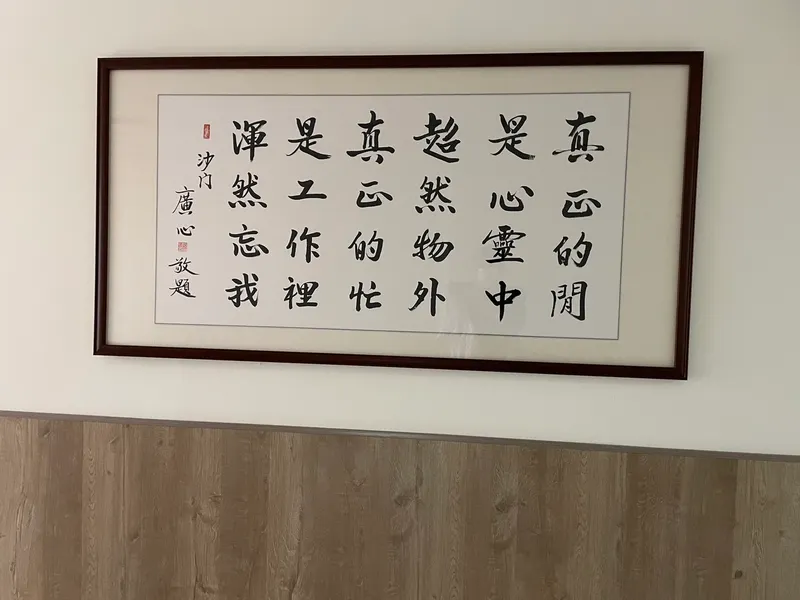 真正的閒
是心靈中
超然物外
真正的忙
是工作裡
渾然忘我
沙门
廣心 敬題